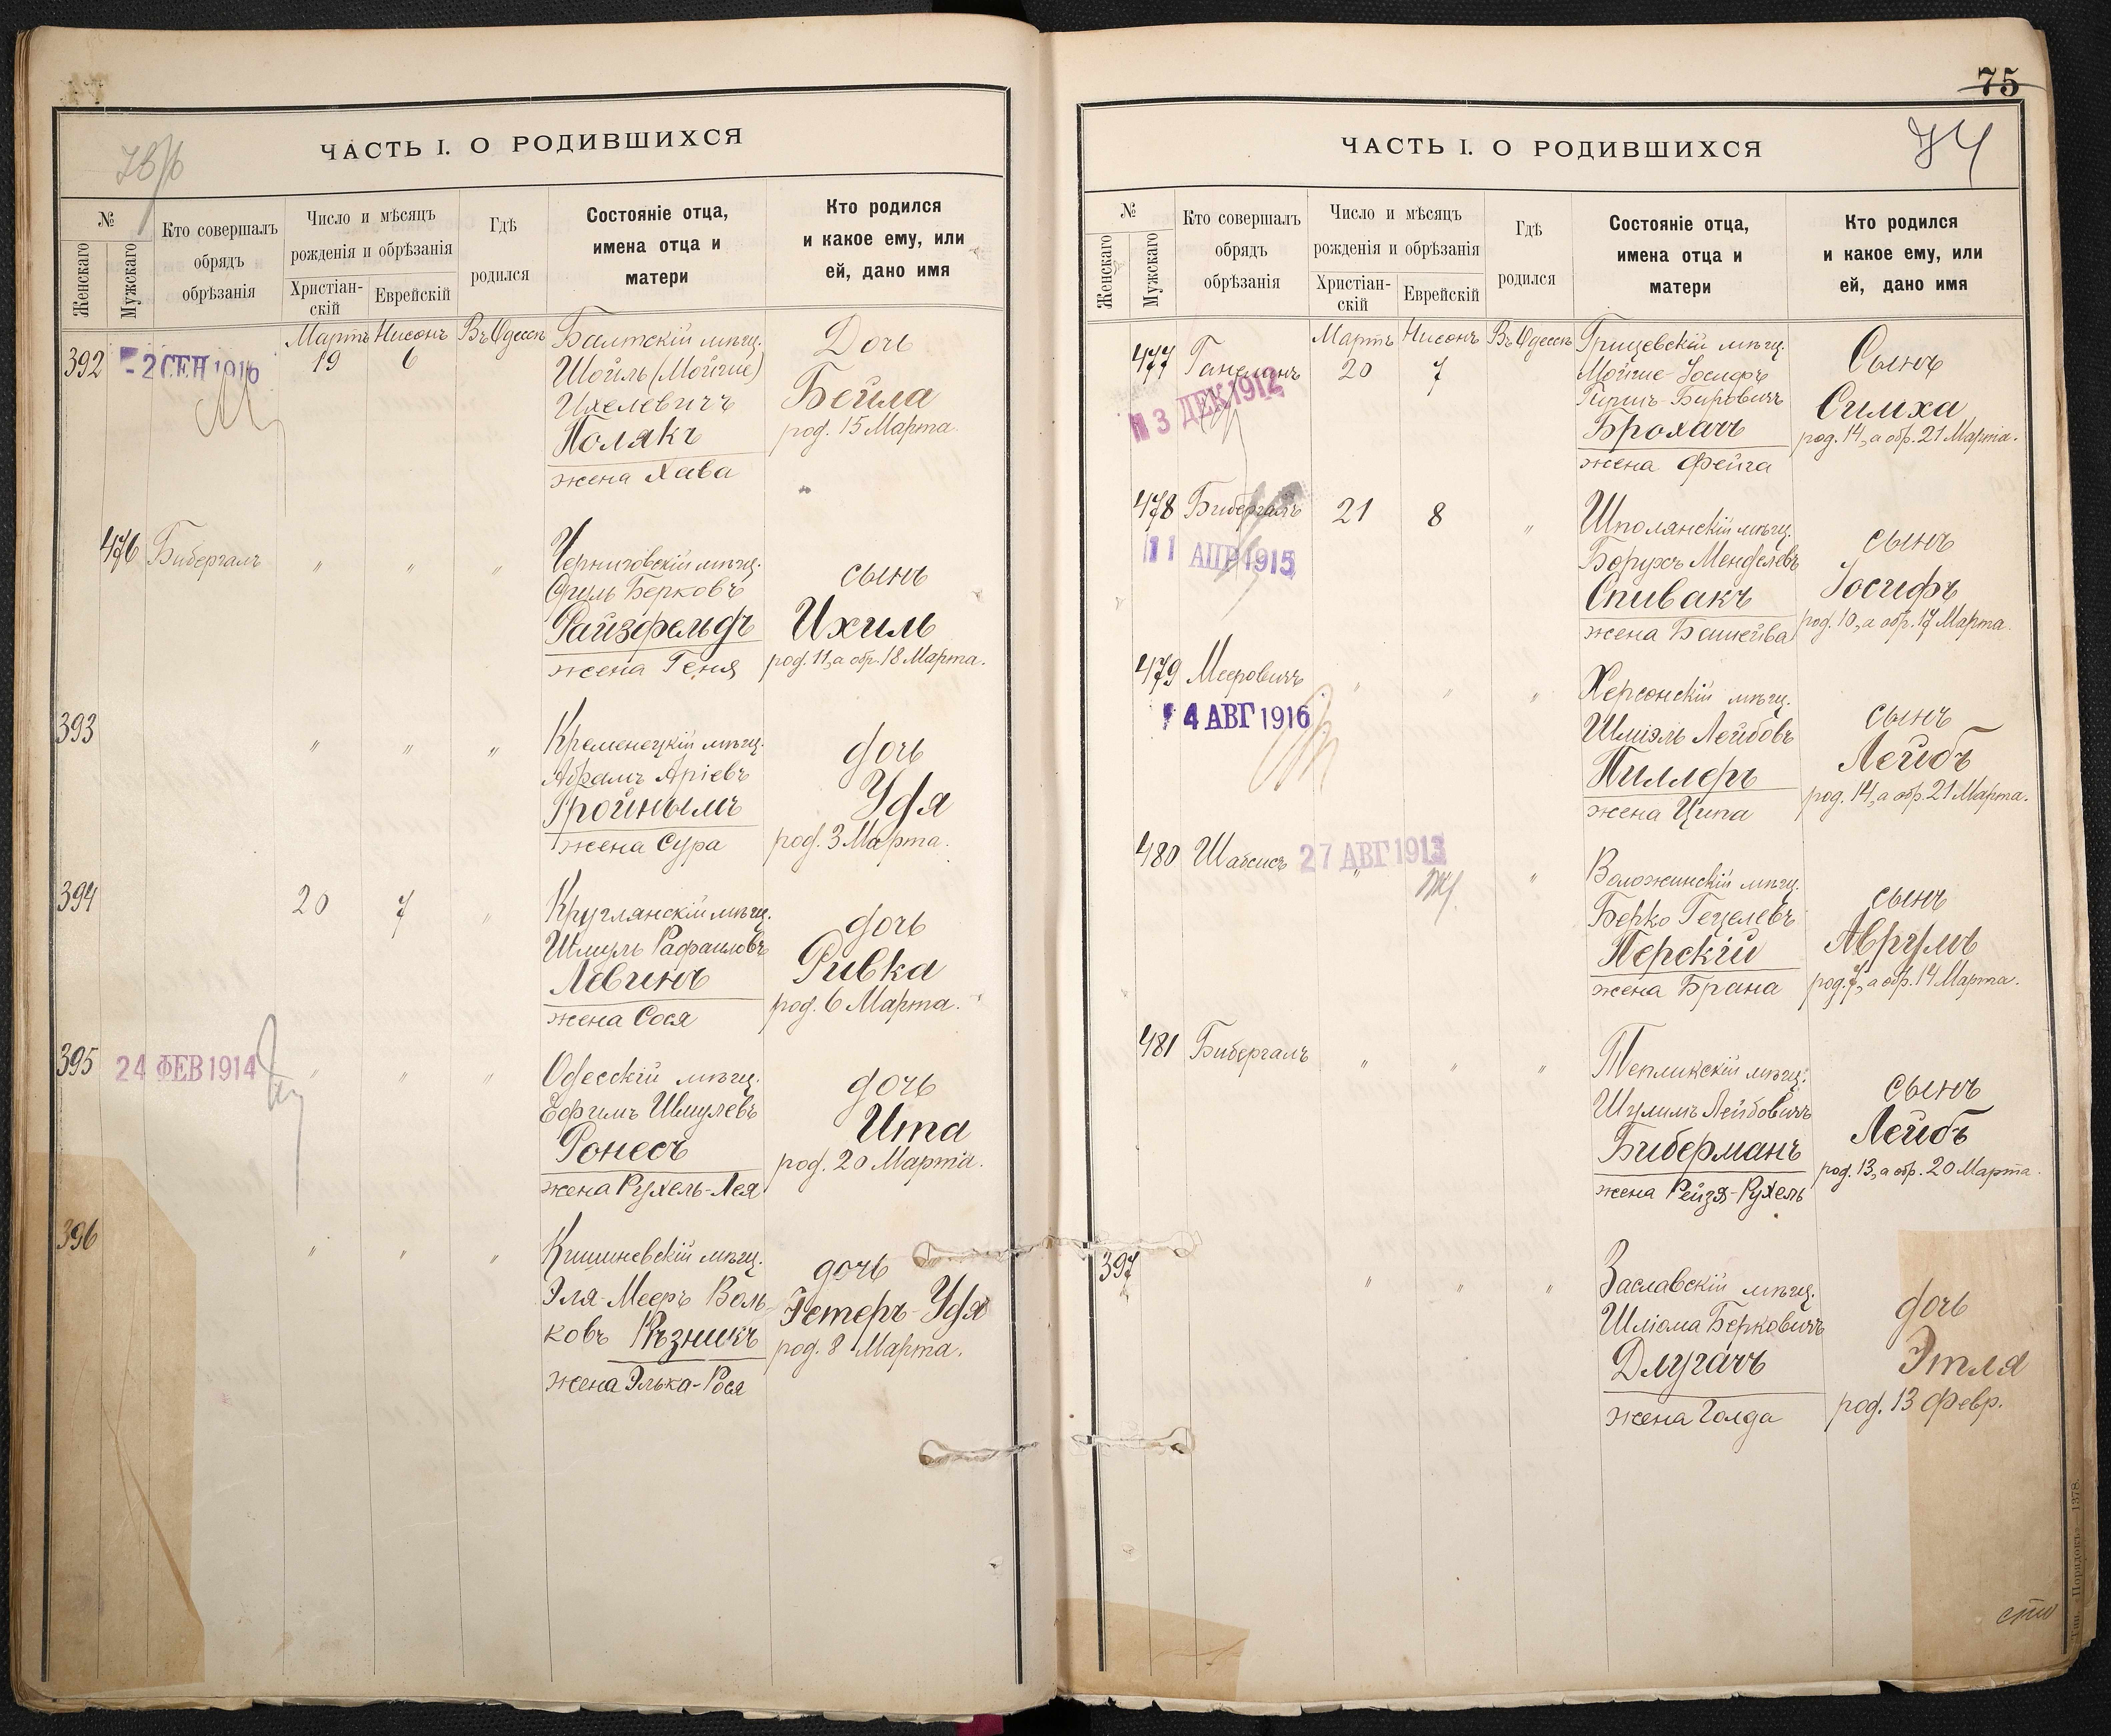 ЧАСТЬ I. О РОДИВШИХСЯ
№
Женскаго
Мужскаго
Кто совершалъ
обрядъ
обрѣзанія
Число и мѣсяцъ
рожденія и обрѣзанія
Христіан-
скій
Еврейскій
Гдѣ
родился
Состояніе отца,
имена отца и
матери
Кто родился
и какое ему, или
ей, дано имя
392
- 2 СЕН 1916
Мартъ
19
Нисонъ
6
Въ Одессѣ
Балтскій мѣщ.
Шойль (Мойше)
Ихелевичъ
Полякъ
жена Хава
Дочь
Бейла
род. 15 Марта.
476
Бибергалъ
" " "
Черниговскій мѣщ.
Фулъ Берковъ
Райзфельдъ
жена Геня
сынъ
Ихиль
род. 11, а обр. 18 Марта.
393
" " "
Кременецкій мѣщ.
Абрамъ Аріевъ
Тройнымъ
жена Сура
дочь
Удя
род. 3 Марта.
394
20
7
"
Круглянскій мѣщ.
Шмуль Рафаиловъ
Левинъ
жена Сося
дочь
Ривка
род. 6 Марта.
395
24 ФЕВ 1914
" " "
Одесскій мѣщ.
Ефимъ Шмулевъ
Ронесъ
жена Рухель-Лея
дочь
Ита
род. 20 Марта.
396
" " "
Кишиневскій мѣщ.
Эля-Мееръ Воль-
ковъ Рѣзникъ
жена Элька-Рося
дочь
Гетеръ-Удя
род. 8 Марта.
75
74
ЧАСТЬ I. О РОДИВШИХСЯ
№
Женскаго
Мужскаго
Кто совершалъ
обрядъ
обрѣзанія
Число и мѣсяцъ
рожденія и обрѣзанія
Христіан-
скій
Еврейскій
Гдѣ
родился
Состояніе отца,
имена отца и
матери
Кто родился
и какое ему, или
ей, дано имя
477
3 ДЕК 1912
Мартъ
20
Нисонъ
7
Въ Одессѣ
Грицевскій мѣщ.
Мойше-Іосифъ
Гершъ-Беровичъ
Брохачъ
жена Фейга
Сынъ
Симха
род. 14, а обр. 21 Марта.
478
Бибергалъ
11 АПР 1915
21
8
"
Шполянскій мѣщ.
Борухъ Менделевъ
Спивакъ
жена Башейва
сынъ
Іосифъ
род. 10, а обр. 17 Марта.
479
Мееровичъ
4 АВГ 1916
" " "
Херсонскій мѣщ.
Шміэль Лейбовъ
Пиллеръ
жена Ципа
сынъ
Лейбъ
род. 14, а обр. 21 Марта.
480
Шабсисъ
27 АВГ 1913
" "
Воложинскій мѣщ.
Берко Гецелевъ
Перскій
жена Брана
сынъ
Аврумъ
род. 7, а обр. 14 Марта.
481
Бибергалъ
" " "
Тепликскій мѣщ.
Шулимъ Лейбовичъ
Биберманъ
жена Рейзя-Рухель
сынъ
Лейбъ
род. 13, а обр. 20 Марта.
397
" " "
Заславскій мѣщ.
Шліома Берковичъ
Длугачъ
жена Голда
дочь
Этля
род. 13 Февр.
Тип. „Порядокъ“ 1378.